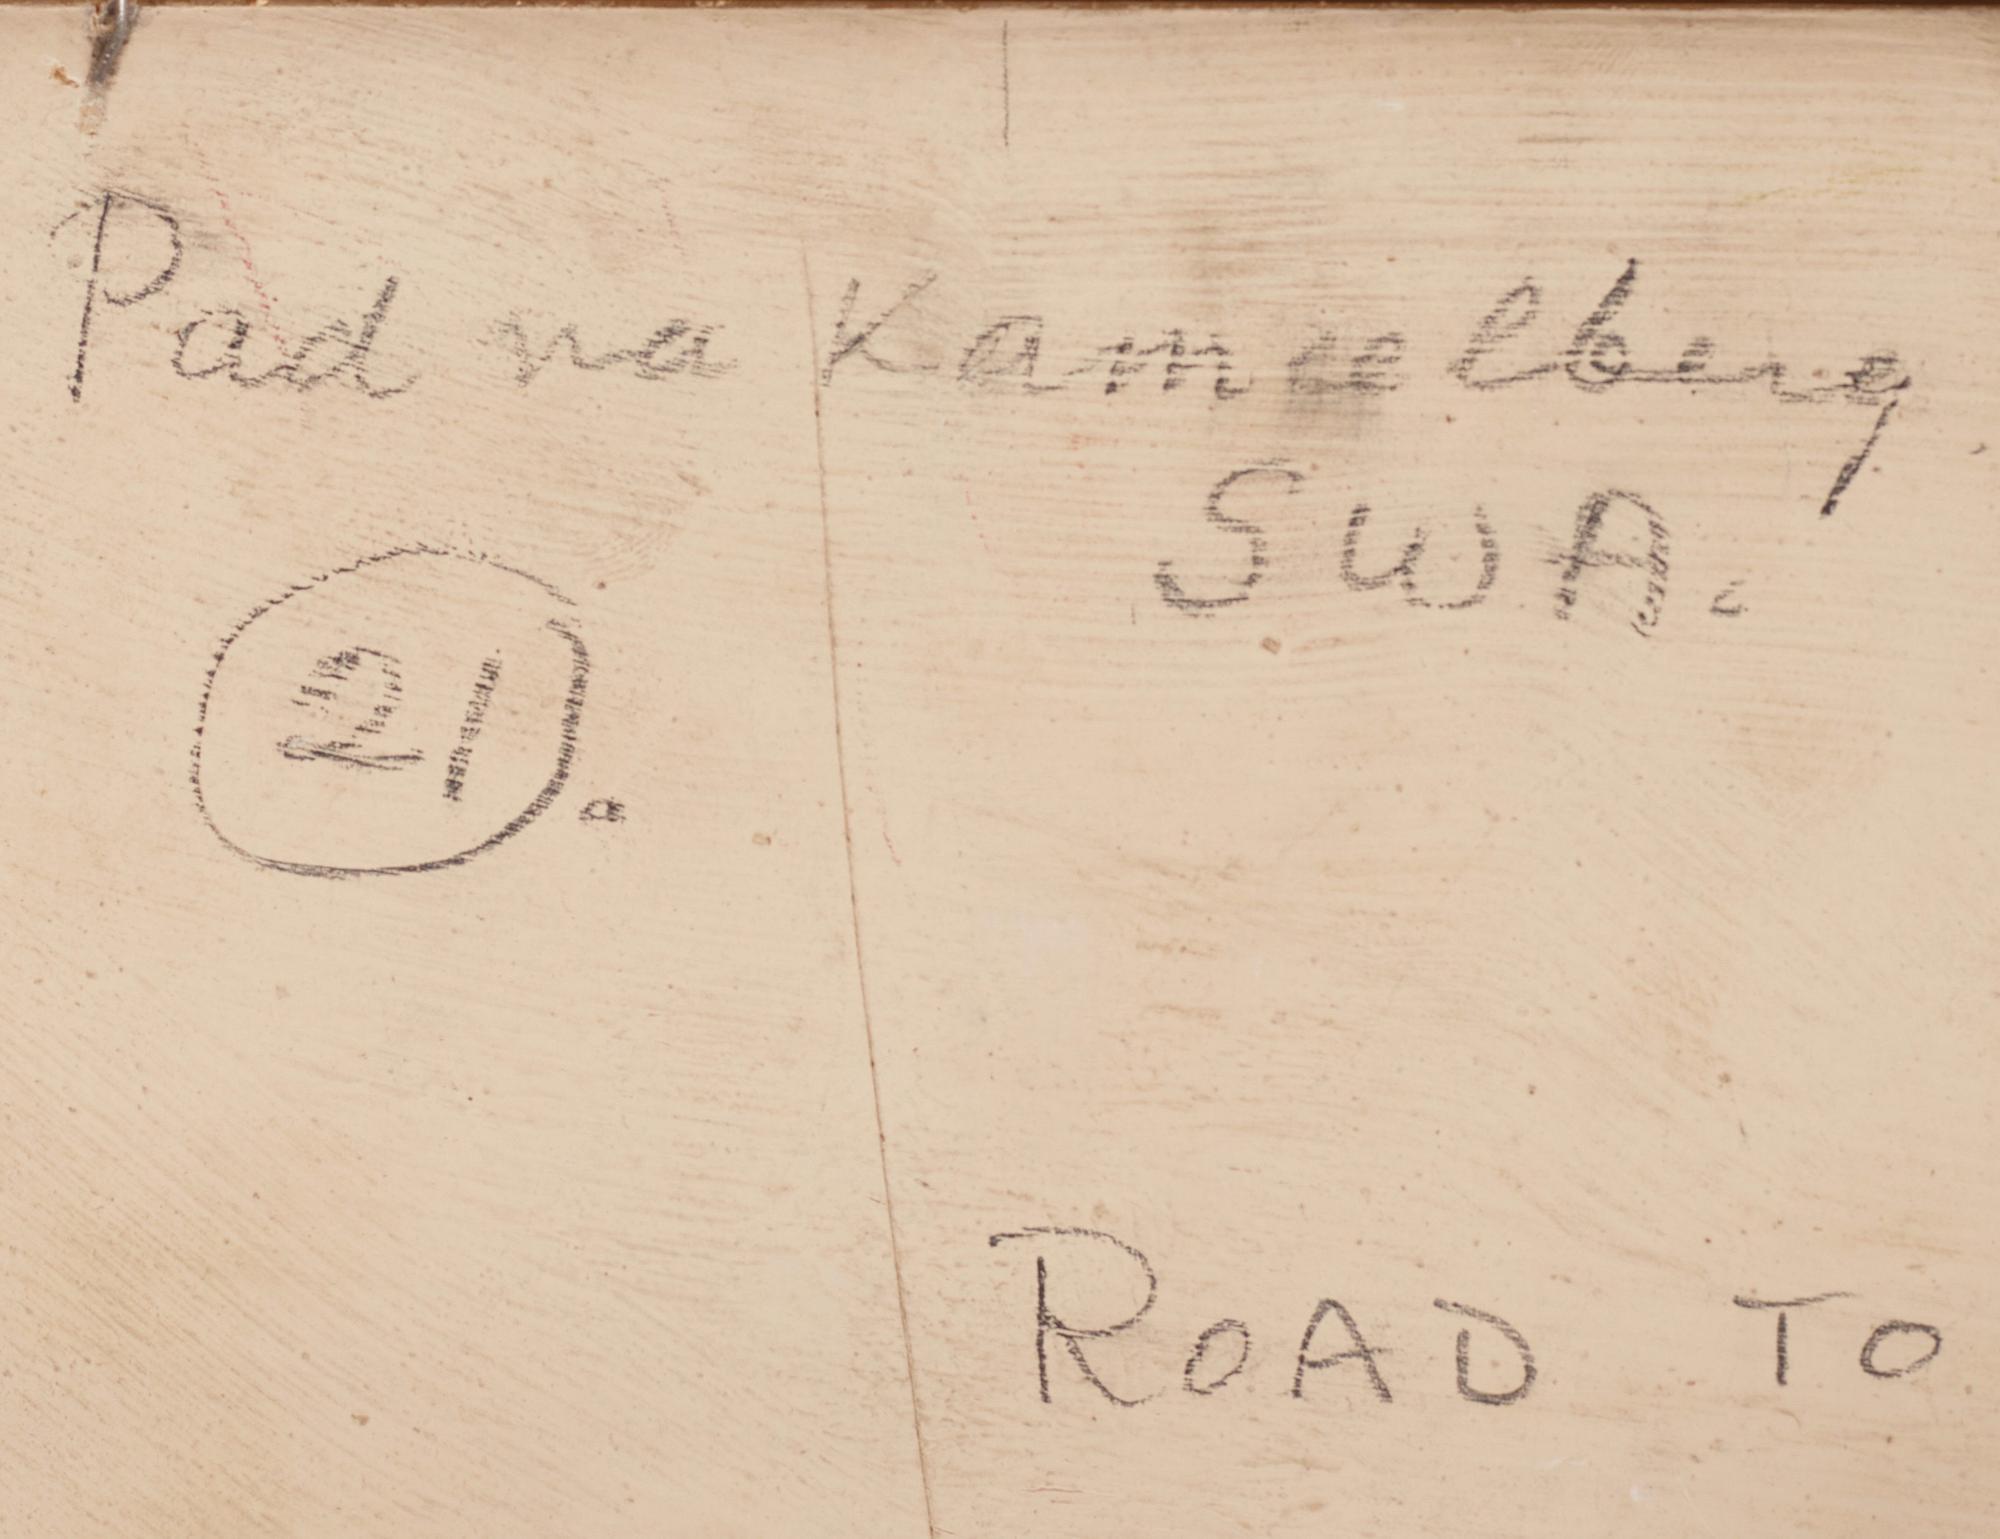 Pad na Kamelberg
SWA.
21.
ROAD TO